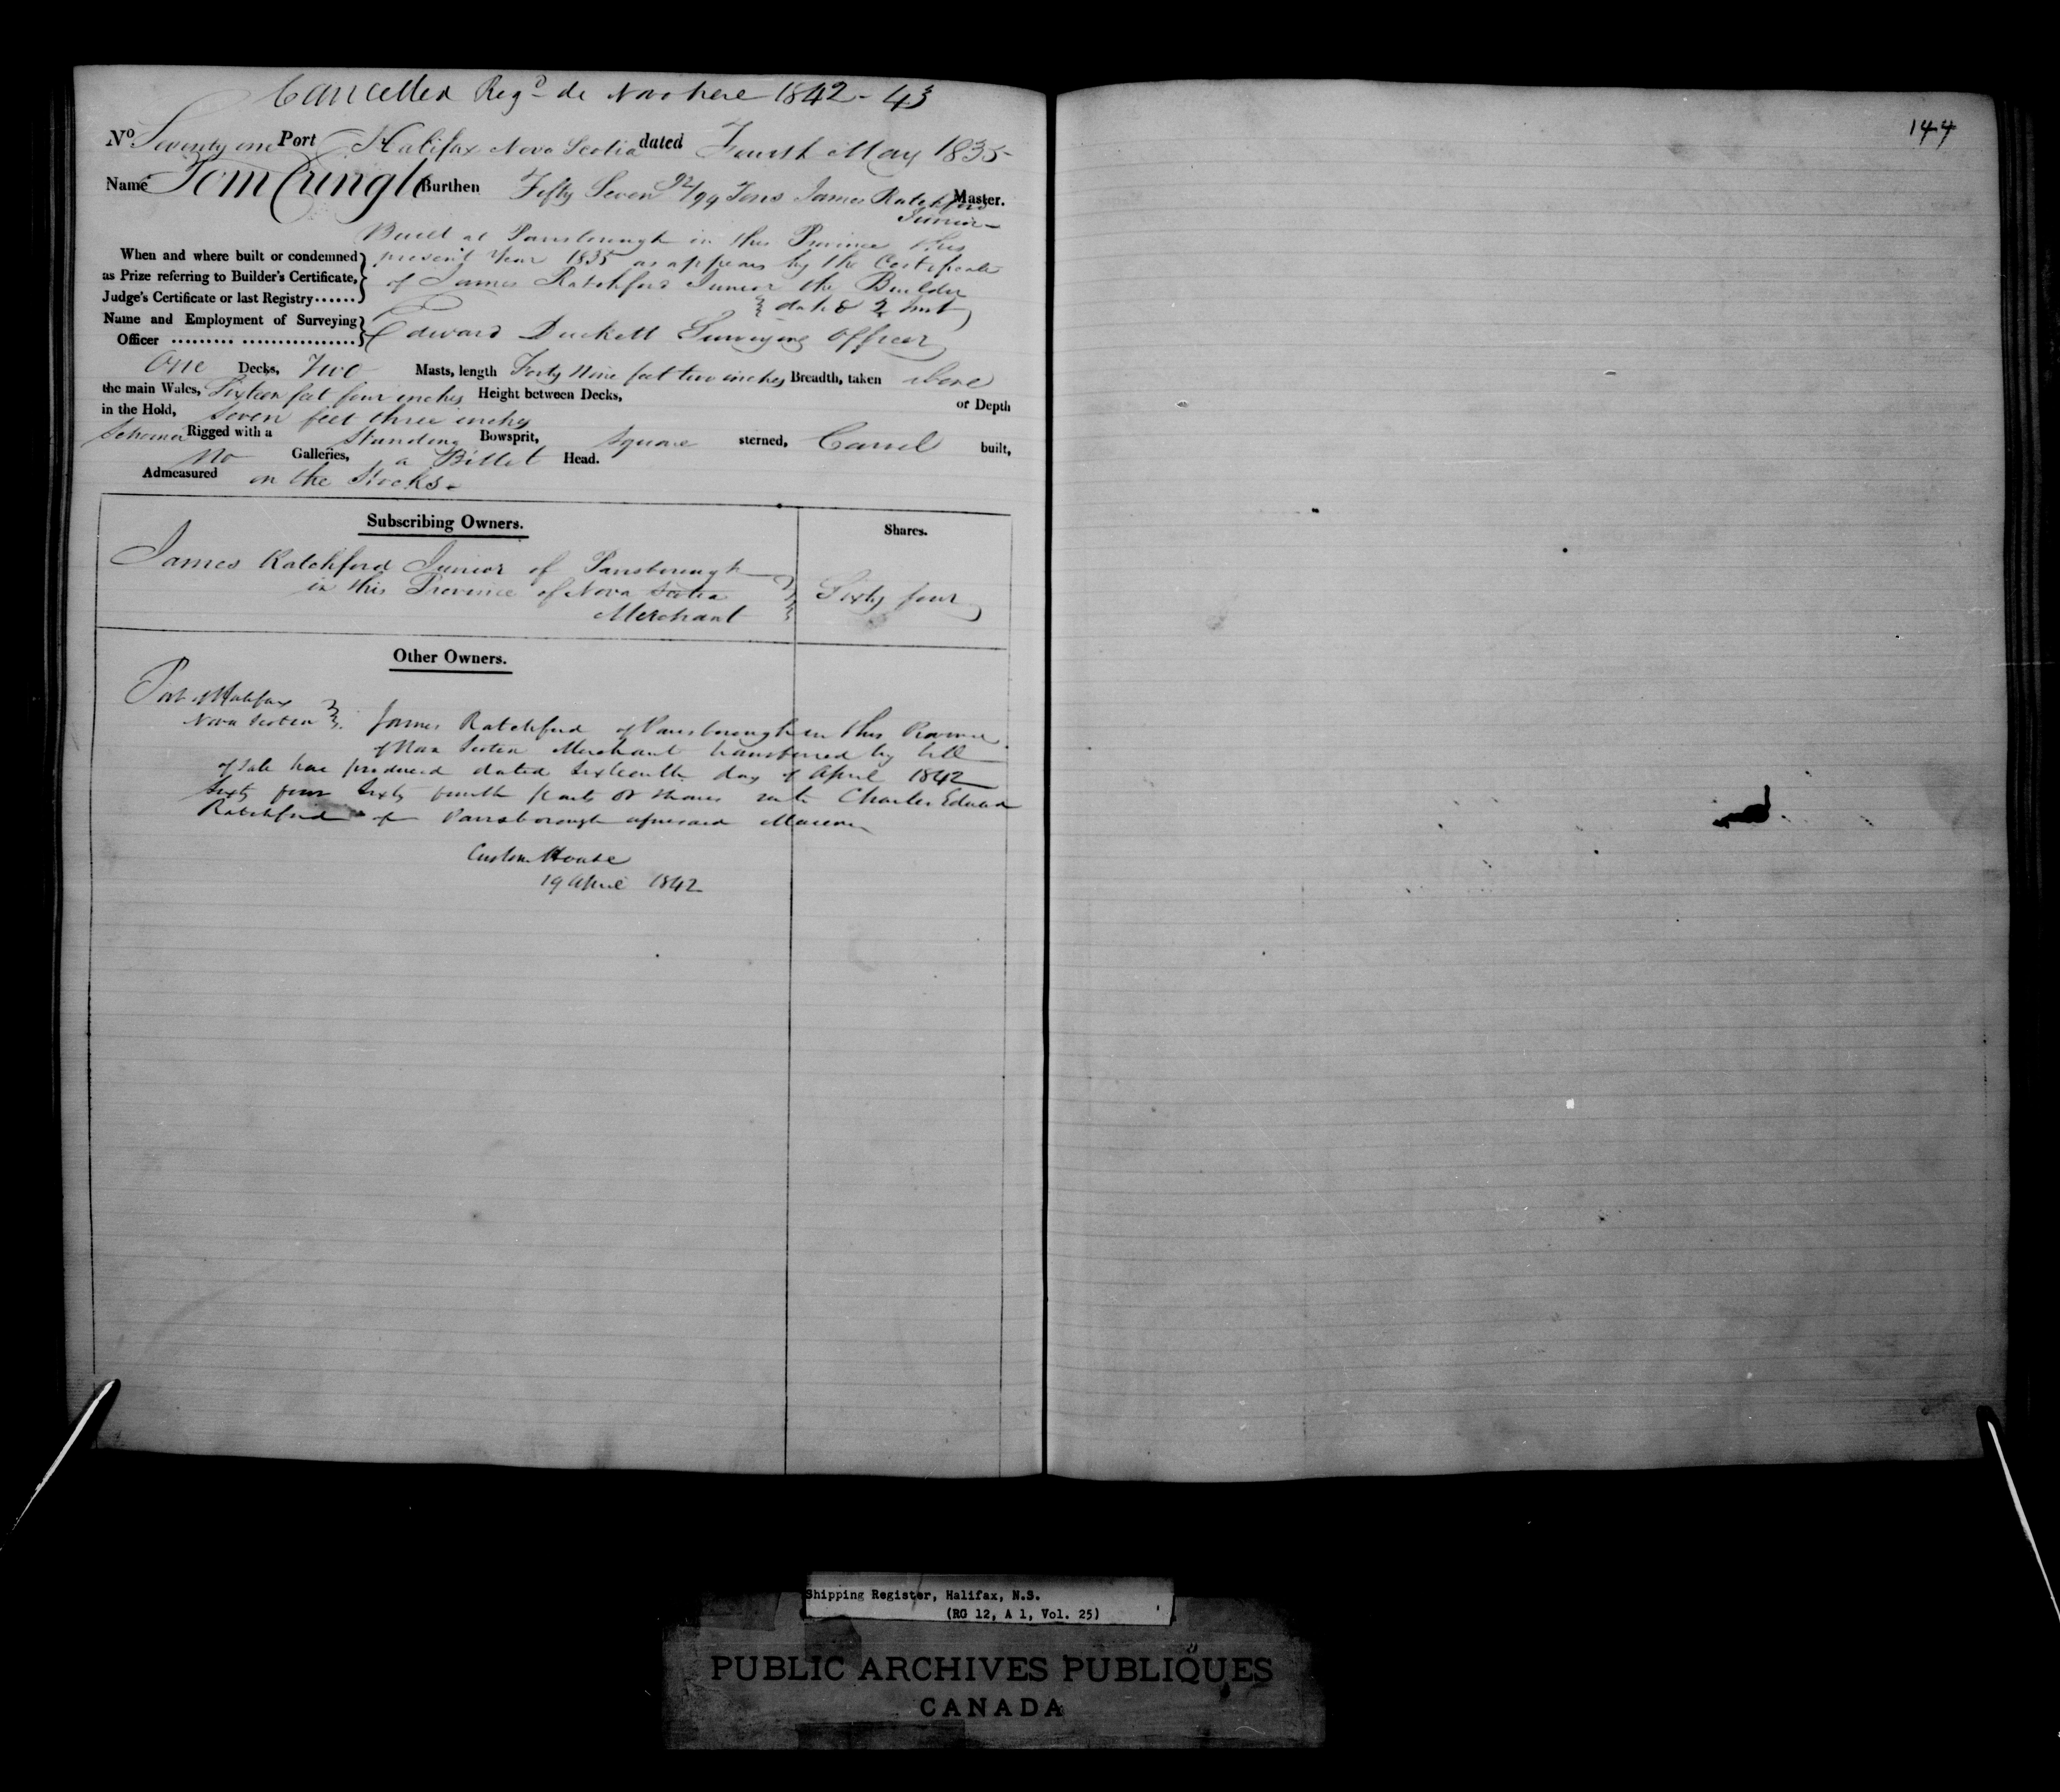 Cancelled Reg.d de Novo here 1842 - 43
144
No. Seventy one Port Halifax Nova Scotia dated Fourth May 1835
Name Tom Cringle Burthen Fifty Seven 92/94 Tons James Ratchford Master.
Junior
Built at Parrsborough in this Province this
When and where built or condemned present Year 1835 as appears by the Certificate
as Prize referring to Builder's Certificate, of James Ratchford Junior the Builder
Judge's Certificate or last Registry...... dated 2 Inst
Name and Employment of Surveying
Officer ......... ................ Edward Duckett Surveying Officer
One Decks, Two Masts, length Forty Nine feet two inches Breadth, taken above
the main Wales, Sixteen feet four inches Height between Decks, or Depth
in the Hold, Seven feet three inches
Schooner Rigged with a Standing Bowsprit, Square sterned, Carvel built,
No Galleries, a Billet Head.
Admeasured on the Stocks.
Subscribing Owners. Shares.
James Ratchford Junior of Parrsborough
in this Province of Nova Scotia Sixty four
Merchant
Other Owners.
Port of Halifax
Nova Scotia James Ratchford of Parrsborough in this Province
of Nova Scotia Merchant transferred by bill
of Sale here produced dated Sixteenth day of April 1842
Sixty four Sixty fourth parts or shares unto Charles Edward
Ratchford of Parrsborough aforesaid
Custom House
19 April 1842
Shipping Register, Halifax, N.S.
(RG 12, A 1, Vol. 25)
PUBLIC ARCHIVES PUBLIQUES
CANADA